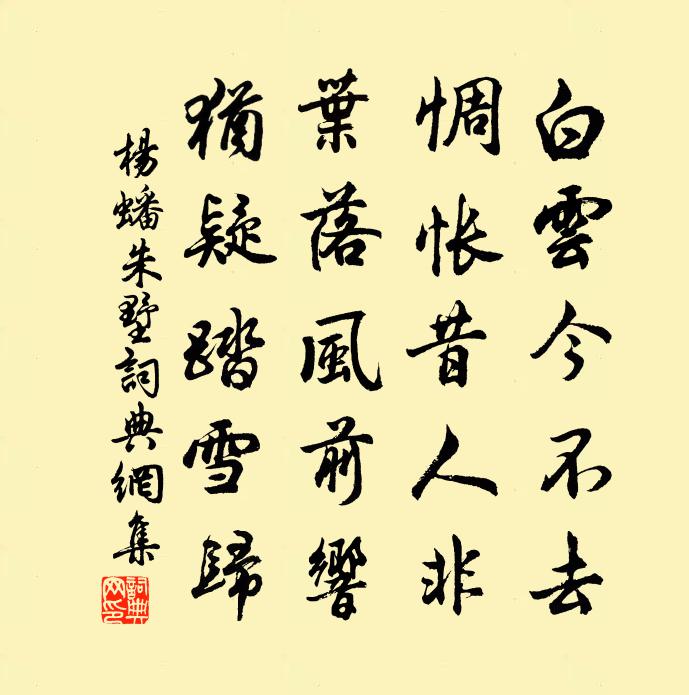 白雲今不去
惆悵昔人非
葉落風前響
猶疑踏雪歸
楊蟠朱墅詞典網集
詞典網印